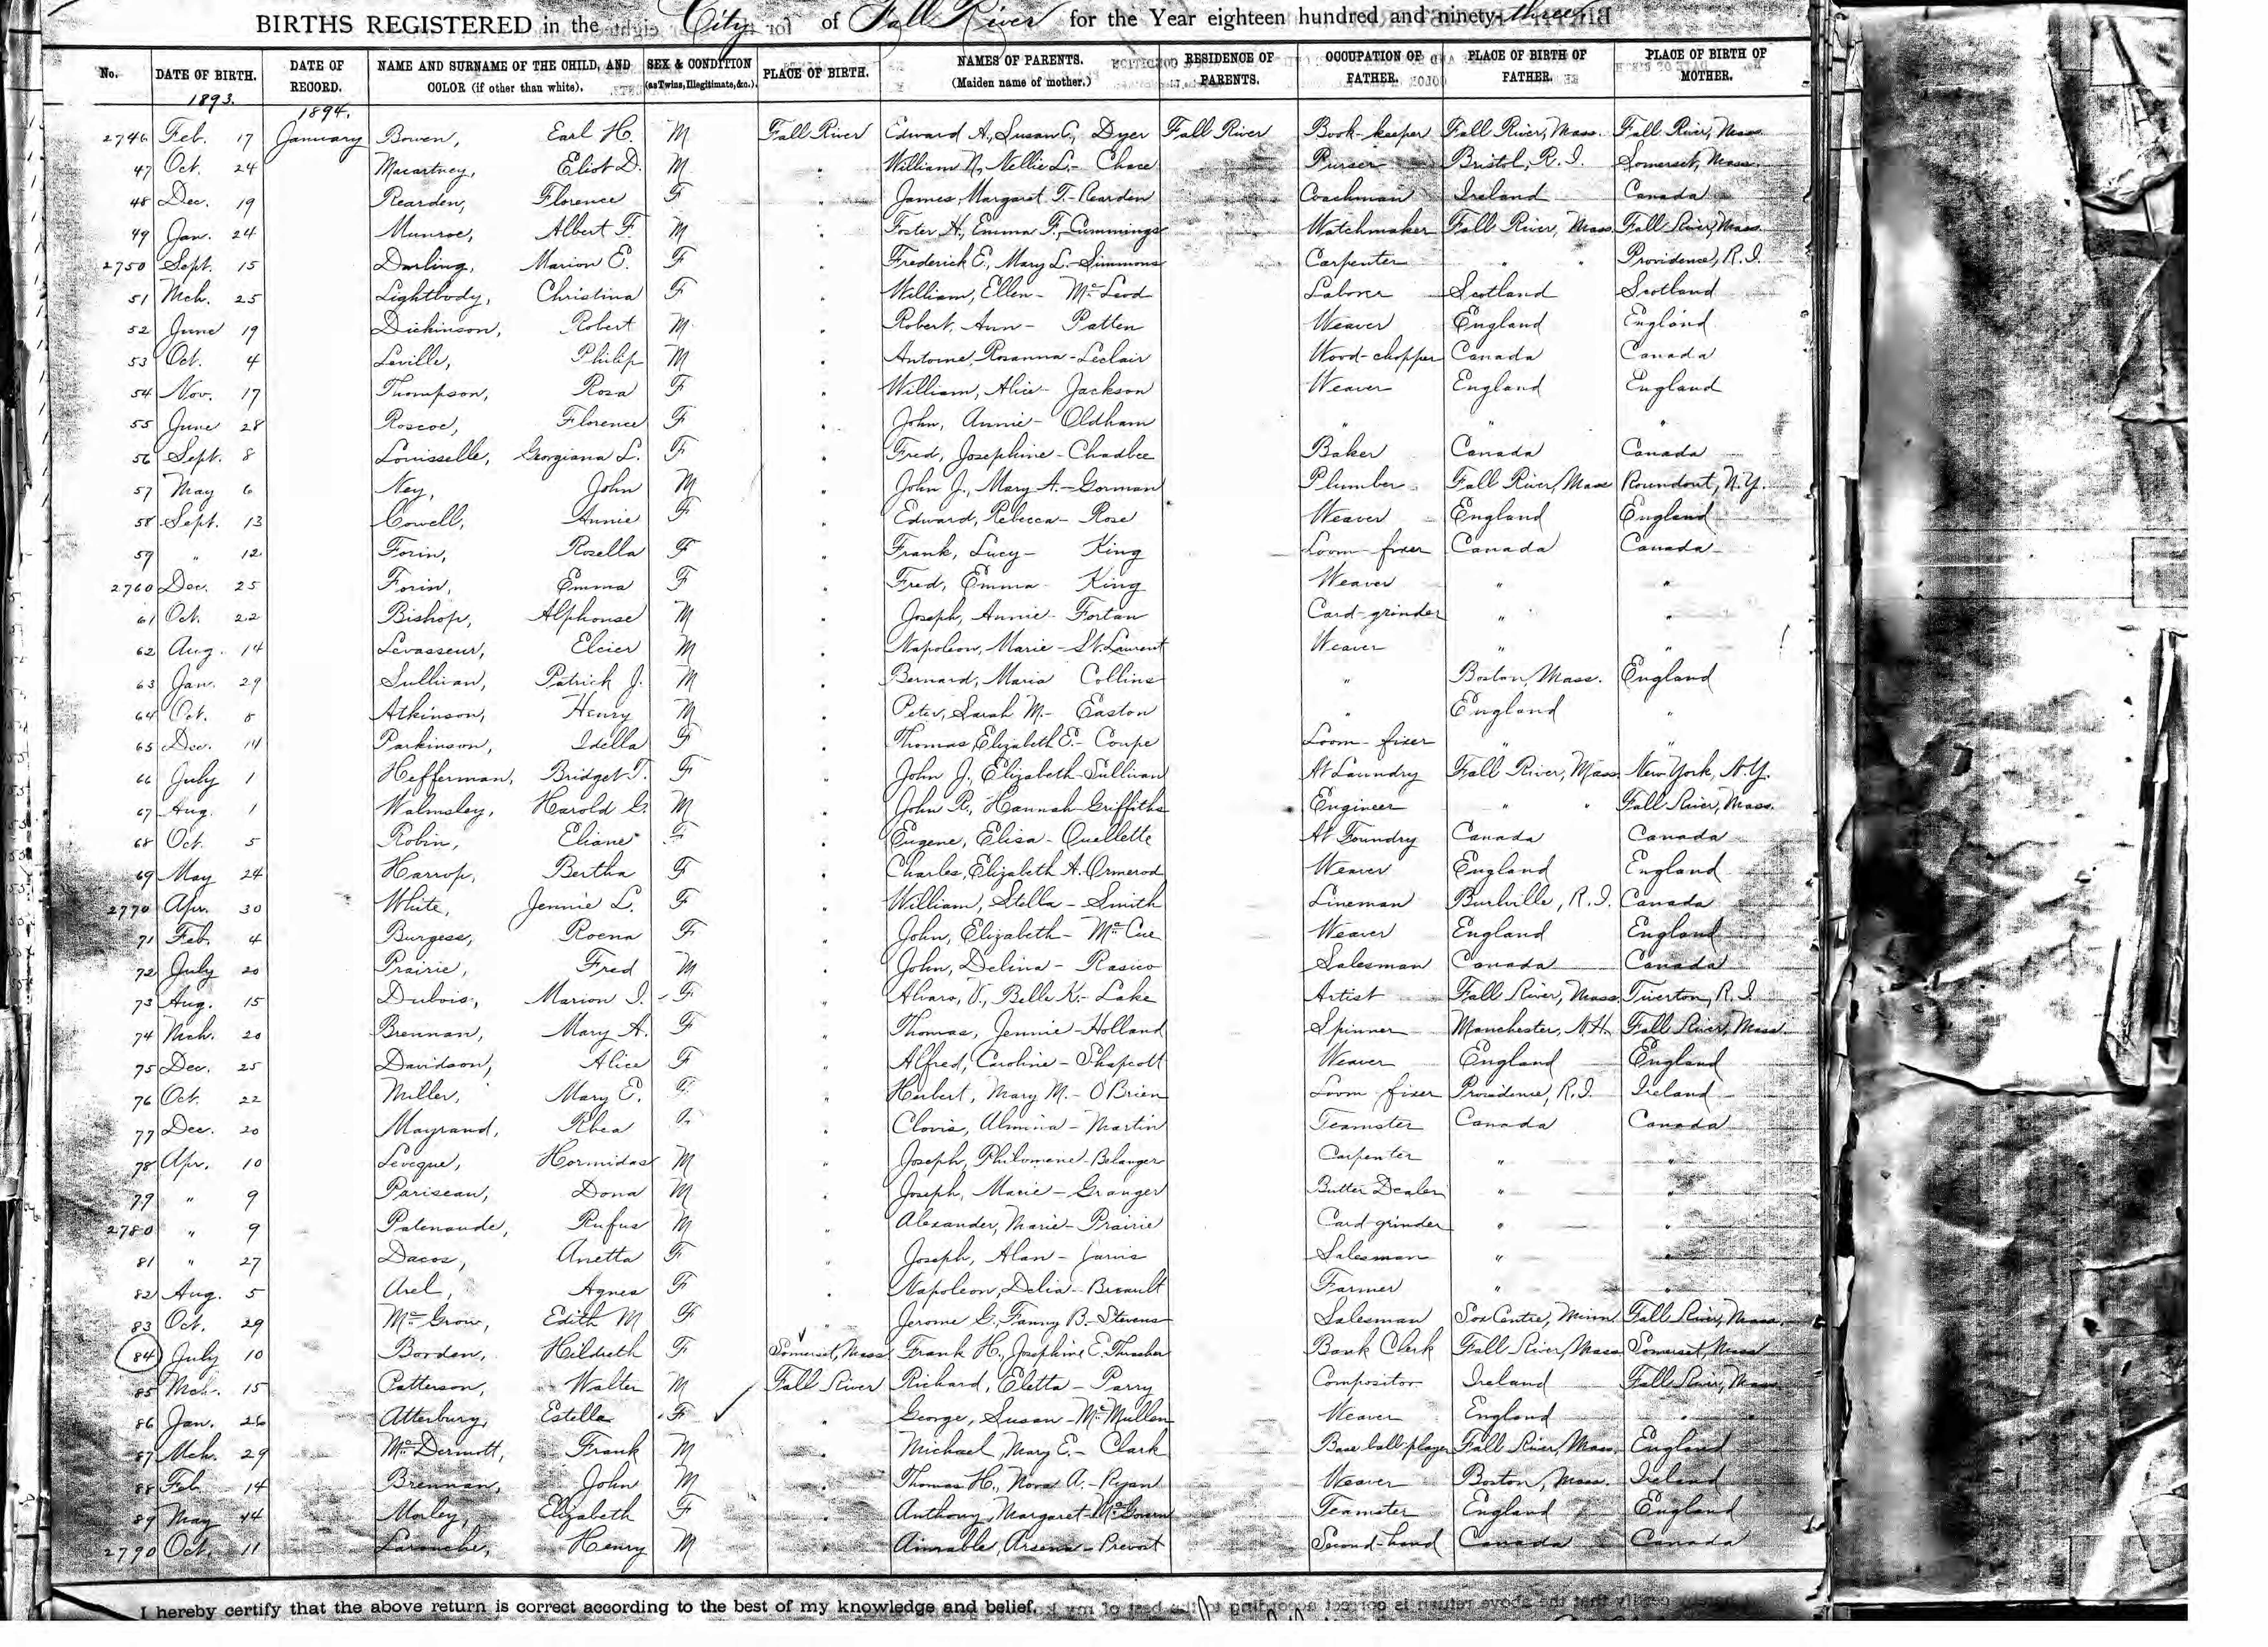 BIRTHS REGISTERED in the City of Fall River for the Year eighteen hundred and ninety-three
No. DATE OF BIRTH. DATE OF RECORD. NAME AND SURNAME OF THE CHILD, AND COLOR (if other than white). SEX & CONDITION (as Twins, Illegitimate, &c.) PLACE OF BIRTH. NAMES OF PARENTS. (Maiden name of mother.) RESIDENCE OF PARENTS. OCCUPATION OF FATHER. PLACE OF BIRTH OF FATHER. PLACE OF BIRTH OF MOTHER.
1893. 1894.
2746 Feb. 17 January Bowen, Earl H. M Fall River Edward A., Susan C., Dyer Fall River Book-keeper Fall River, Mass. Fall River, Mass.
47 Oct. 24 Macartney, Eliot D. M " William N., Nellie L.- Chace Purser Bristol, R.I. Somerset, Mass.
48 Dec. 19 Rearden, Florence F " James, Margaret T.- Rearden Coachman Ireland Canada
49 Jan. 24 Munroe, Albert F. M " Foster H., Emma F., Cummings Watchmaker Fall River, Mass. Fall River, Mass.
2750 Sept. 15 Darling, Marion E. F " Frederick E., Mary L.- Simmons Carpenter " " Providence, R.I.
51 Mch. 25 Lightbody, Christina F " William, Ellen- McLeod Laborer Scotland Scotland
52 June 19 Dickinson, Robert M " Robert, Ann- Patten Weaver England England
53 Oct. 4 Leville, Philip M " Antoine, Rosanna- Leclair Wood-chopper Canada Canada
54 Nov. 17 Thompson, Rosa F " William, Alice- Jackson Weaver England England
55 June 28 Roscoe, Florence F " John, Annie- Oldham " " "
56 Sept. 8 Louisselle, Georgiana L. F " Fred, Josephine- Chadbee Baker Canada Canada
57 May 6 Ney, John M " John J., Mary A.- Gorman Plumber Fall River, Mass Roundout, N.Y.
58 Sept. 13 Cowell, Annie F " Edward, Rebecca- Rose Weaver England England
59 " 12 Forin, Rosella F " Frank, Lucy- King Loom-fixer Canada Canada
2760 Dec. 25 Forin, Emma F " Fred, Emma- King Weaver " "
61 Oct. 22 Bishop, Alphonse M " Joseph, Annie- Fortan Card-grinder " "
62 Aug. 14 Levasseur, Elcier M " Napoleon, Marie- St. Laurent Weaver " "
63 Jan. 29 Sullivan, Patrick J. M " Bernard, Maria Collins " Boston, Mass. England
64 Oct. 8 Atkinson, Henry M " Peter, Sarah M.- Easton " England "
65 Dec. 14 Parkinson, Idella F " Thomas, Elizabeth E.- Coupe Loom-fixer " "
66 July 1 Hefferman, Bridget T. F " John J., Elizabeth- Sullivan At Laundry Fall River, Mass. New York, N.Y.
67 Aug. 1 Walmsley, Harold G. M " John R., Hannah- Griffiths Engineer " " Fall River, Mass.
68 Oct. 5 Robin, Eliane F " Eugene, Elisa- Ouellette At Foundry Canada Canada
69 May 24 Harrop, Bertha F " Charles, Elizabeth A. Ormerod Weaver England England
2770 Apr. 30 White, Jennie L. F " William, Stella- Smith Lineman Burlville, R.I. Canada
71 Feb. 4 Burgess, Roena F " John, Elizabeth- McCue Weaver England England
72 July 20 Prairie, Fred M " John, Delina- Rasico Salesman Canada Canada
73 Aug. 15 Dubois, Marion I. F " Alvaro, V., Belle K.- Lake Artist Fall River, Mass. Tiverton, R.I.
74 Mch. 20 Brennan, Mary A. F " Thomas, Jennie- Holland Spinner Manchester, N.H. Fall River, Mass.
75 Dec. 25 Davidson, Alice F " Alfred, Caroline- Shapcott Weaver England England
76 Oct. 22 Miller, Mary E. F " Herbert, Mary M.- O'Brien Loom fixer Providence, R.I. Ireland
77 Dec. 20 Mayrand, Rhea F " Clovis, Almina- Martin Teamster Canada Canada
78 Apr. 10 Leveque, Hormidas M " Joseph, Philomene- Belanger Carpenter " "
79 " 9 Pariseau, Dona M " Joseph, Marie- Granger Butter Dealer " "
2780 " 9 Patenaude, Rufus M " Alexander, Marie- Prairie Card-grinder " "
81 " 27 Dacos, Anetta F " Joseph, Alan- Jarvis Salesman " "
82 Aug. 5 Arel, Agnes F " Napoleon, Delia- Breault Farmer " "
83 Oct. 29 McGrow, Edith M F " Jerome G., Fanny B.- Stevens Salesman Sox Centre, Minn Fall River, Mass.
84 July 10 Borden, Hildreth F Somerset, Mass Frank H., Josephine E. Thracher Bank Clerk Fall River, Mass Somerset, Mass
85 Mch. 15 Patterson, Walter M Fall River Richard, Eletta- Parry Compositor Ireland Fall River, Mass
86 Jan. 26 Atterbury, Estella F " George, Susan- McMullen Weaver England " "
87 Mch. 29 McDermott, Frank M " Michael, Mary E.- Clark Base ball-player Fall River, Mass. England
88 Feb 14 Brennan, John M " Thomas H., Nora A.- Ryan Weaver Boston, Mass. Ireland
89 May 14 Morley, Elizabeth F " Anthony, Margaret- McGovern Teamster England England
2790 Oct. 11 Larouche, Henry M " Aimable, Arsena- Prevost Second-hand Canada Canada
I hereby certify that the above return is correct according to the best of my knowledge and belief.